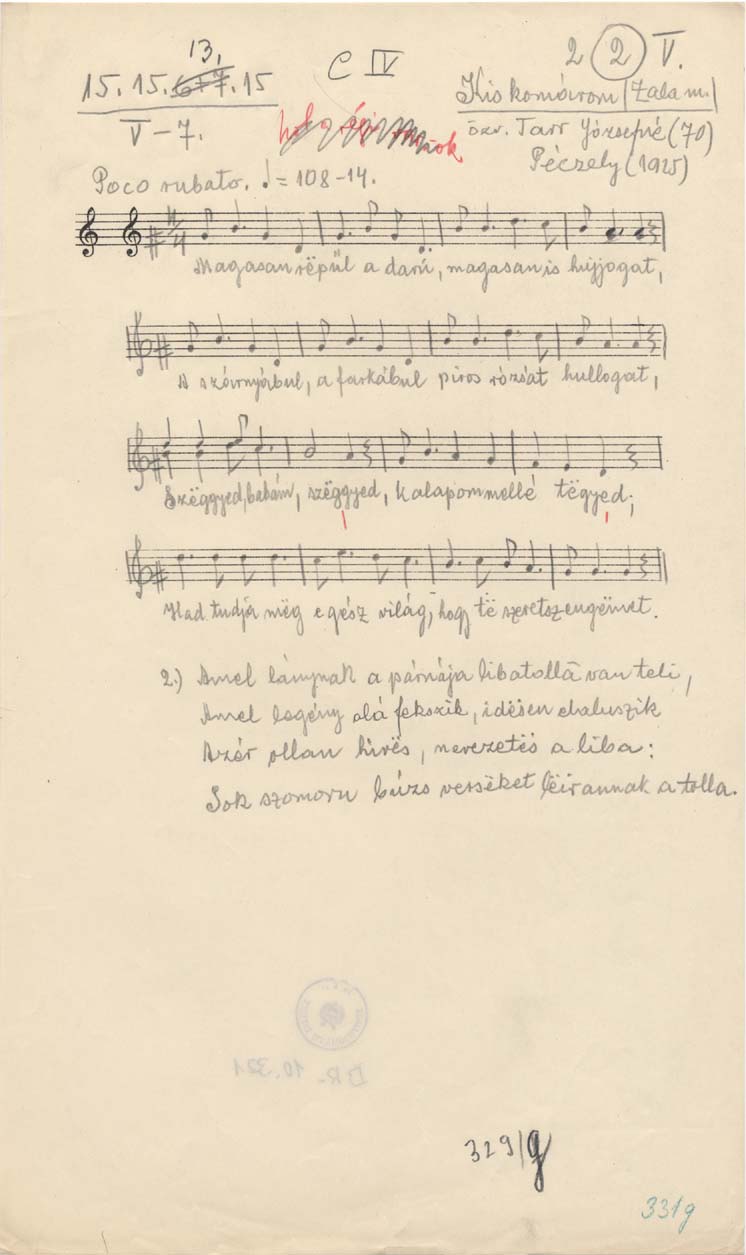 13.
C IV
2 2 V.
15. 15. 6+7. 15
V-7.
Kiskomárom (Zala m.)
özv. Tarr Józsefné (70)
Péczely (1925)
Poco rubato. ♩= 108-14.
Magasan rëpűl a darú, magasan is hujjogat,
A szárnyábul, a farkábul piros rózsát hullogat,
Szëggyed, babám, szëggyed, kalapom mellé tëgyed;
Had tudja mëg egész világ, hogy të szeretsz engëmet.
2.) Amel lánynak a párnája libatollā van teli,
Amel legény alá fekszik, idësen elaluszik
Azér ollan hirës, nevezetës a liba:
Sok szomoru búzs versëket lëirannak a tolla.
BR- 10.321
329/g
331g